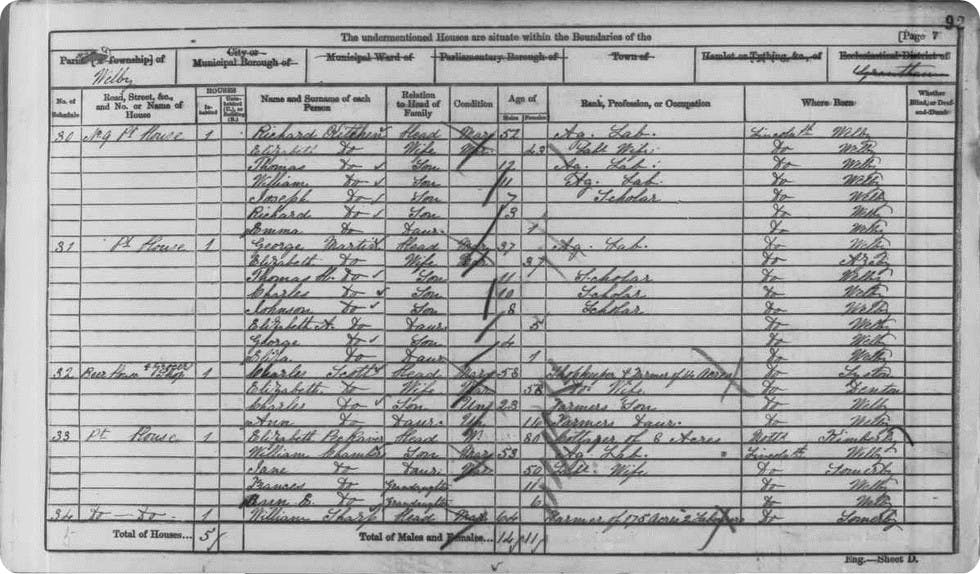 92
The undermentioned Houses are situate within the Boundaries of the [Page 7
Parish [or Township] of City or Municipal Borough of Municipal Ward of Parliamentary Borough of Town of Hamlet or Tything, &c., of Ecclesiastical District of
Welby Grantham
No. of Schedule Road, Street, &c., and No. or Name of House HOUSES Inhabited Uninhabited (U.), or Building (B.) Name and Surname of each Person Relation to Head of Family Condition Age of Males Females Rank, Profession, or Occupation Where Born Whether Blind, or Deaf-and-Dumb
30 No 9 Pt House 1 Richard Head Mar 52 Ag. Lab. Lincolnsh Welby
Elizabeth Do Wife Mar 43 Lab Wife Do Welby
Thomas Do Son 12 Ag. Lab. Do Welby
William Do Son 11 Ag. Lab. Do Welby
Joseph Do Son 7 Scholar Do Welby
Richard Do Son 3 Do Welby
Emma Do Daur 1 Do Welby
31 Pt House 1 George Martin Head Mar 37 Ag. Lab. Do Welby
Elizabeth Do Wife Mar 37 Do
Thomas H. Do Son 11 Scholar Do Welby
Charles Do Son 10 Scholar Do Welby
Johnson Do Son 8 Scholar Do Welby
Elizabeth A. Do Daur 5 Do Welby
George Do Son 4 Do Welby
Eliza Do Daur 1 Do Welby
32 Beer House & Grocer Shop 1 Charles Scott Head Mar 58 Shopkeeper & Farmer of 14 Acres Do
Elizabeth Do Wife Mar 58 Do Wife Do Denton
Charles Do Son Un 23 Farmers Son Do Welby
Ann Do Daur Un 16 Farmers Daur. Do Welby
33 Pt House 1 Elizabeth Head W 80 Cottager of 6 Acres Notts
William Chambers Son Mar 53 Ag. Lab. Lincolnsh Welby
Jane Do Daur Mar 50 Lab Wife Do Somerby
Frances Do Grandaughter 11 Do Welby
E. Do Grandaughter 6 Do Welby
34 Do — Do — 1 William Sharp Head Mar 64 Farmer of 175 Acres 2 Labourers Do Somerby
Total of Houses... 5 Total of Males and Females... 14 11
Eng.—Sheet D.